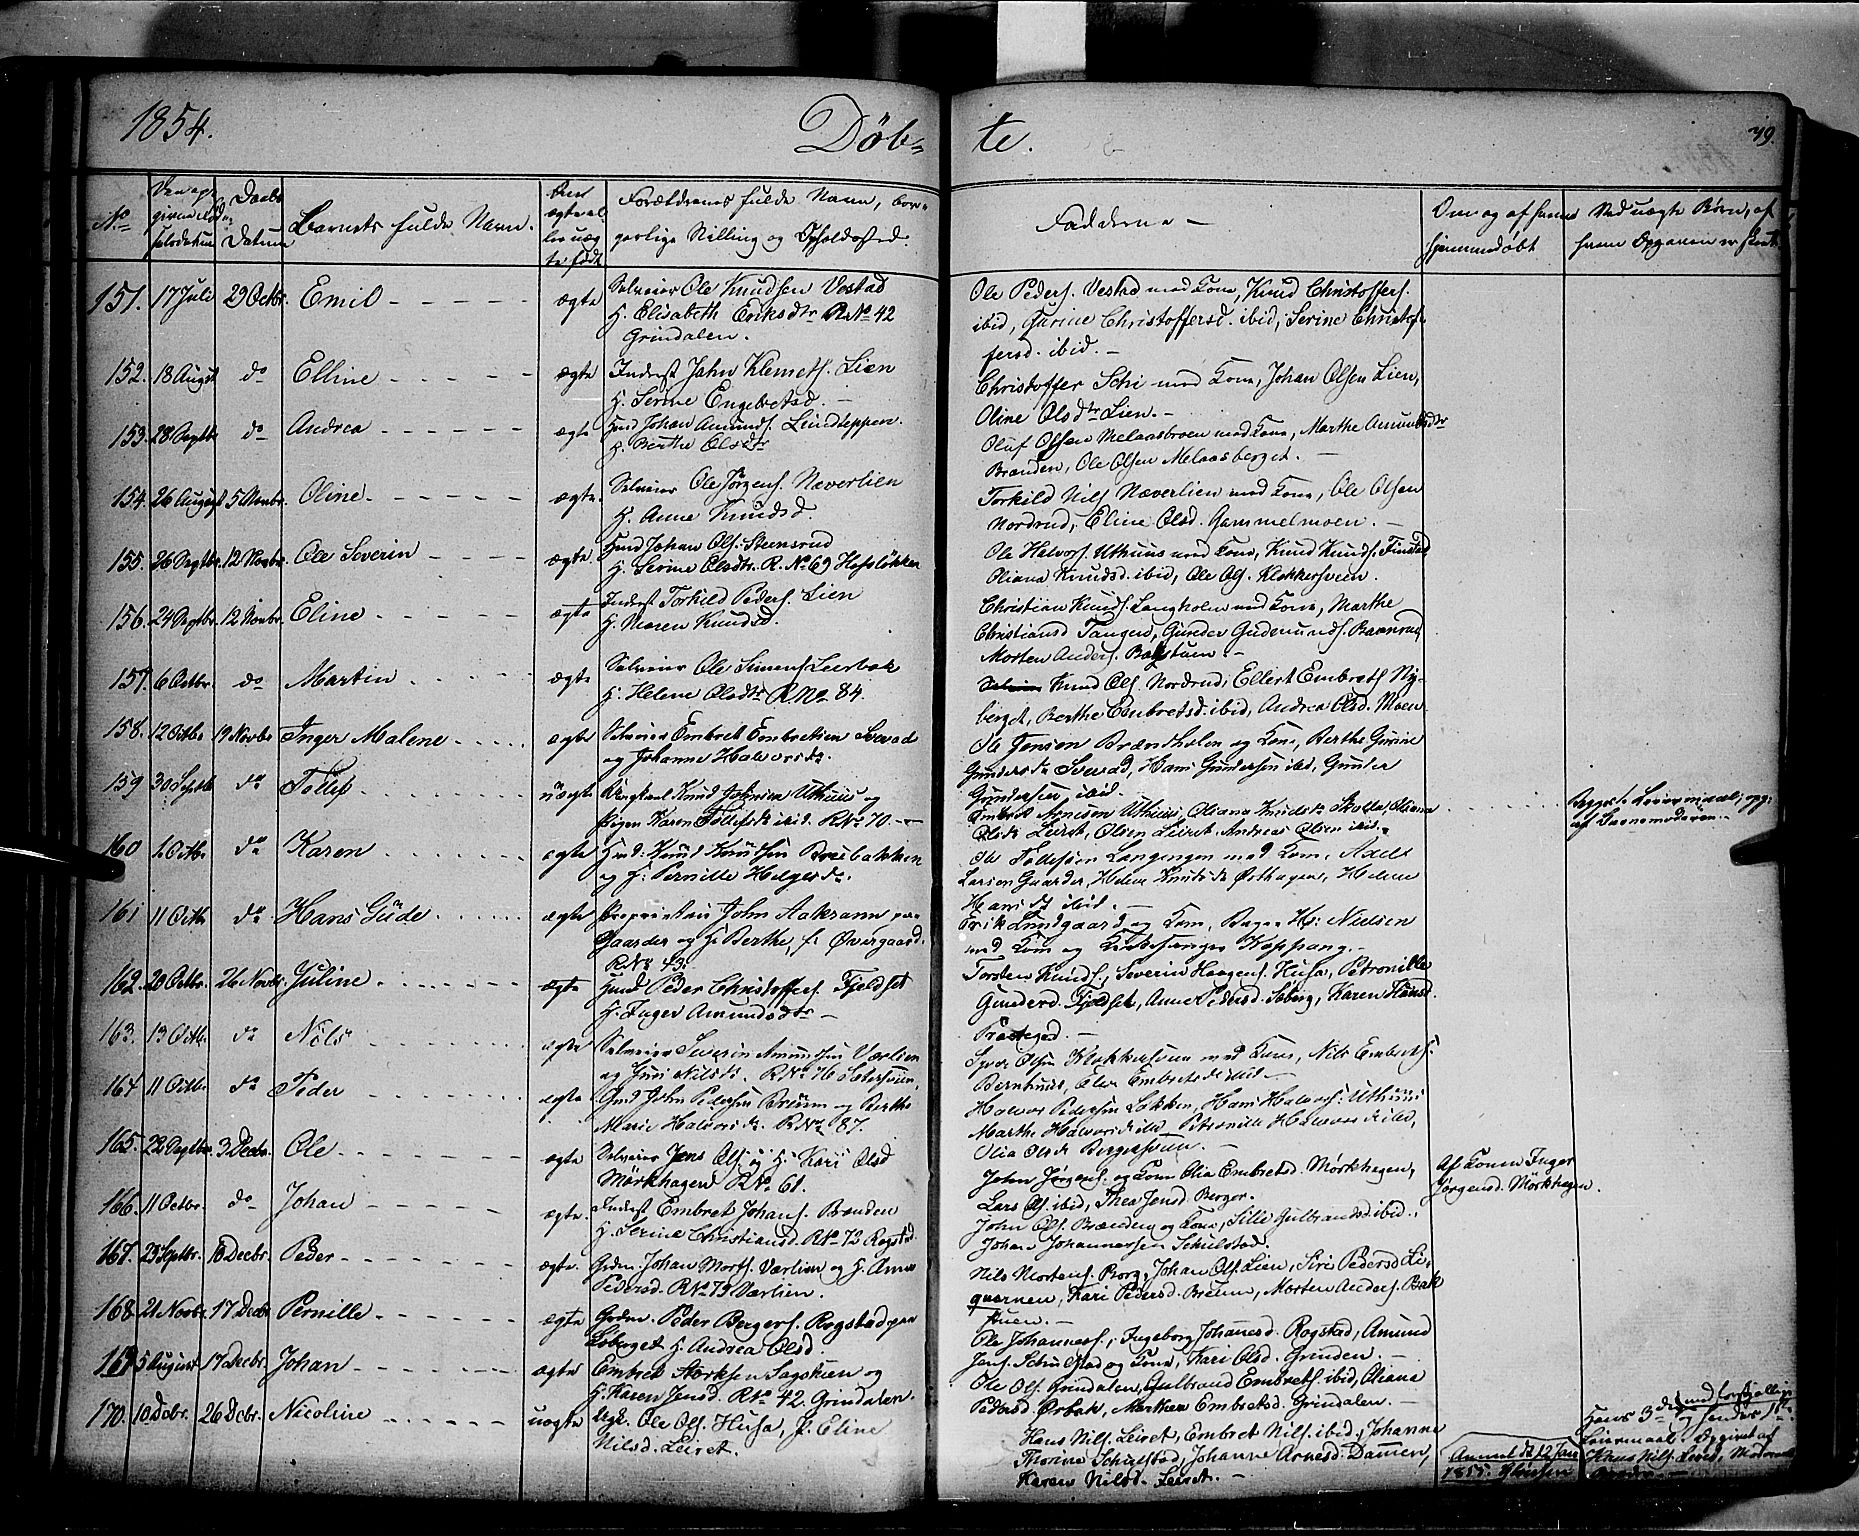 1854.
Døb-
te.
79.
No
Datum
Barnets fulde Navn.
Forældrenes fulde Navn, bor-
gerlige Stilling og Opholdssted.
Fadderne -
Om og af hvem
hjemmedøbt
Ved uægte Børn, af
hvem Opgaven er skeet.
151. 17 Juli 29 Octbr. Emil ægte Selveier Ole Knudsen Vestad
H. Elisabeth Eriksdtr R. No 42
Grindalen.
Ole Peders. Vestad med Kone, Knud Christoffers.
ibid, Christoffersd. ibid, Serine Christof-
fersd. ibid. -
152. 18 August do Elline ægte Inderst John Klemets. Lien
H. Serine Engebretsd. -
Christoffer Schi med Kone, Johan Olsen Lien,
Oline Olsdtr Lien. -
153. 28 Septbr do Andrea ægte Hmd Johan Amunds. Lindteppen.
H. Berthe Olsdtr
Oluf Olsen Melaasbroen med Kone, Marthe Amundsdtr
Brænden, Ole Olsen Melaasberget. -
154. 26 August 5 Novbr. Oline. ægte. Selveier Ole Jørgens. Næverlien
H. Anne Knudsd.
Torkild Nils. Næverlien med Kone, Ole Olsen
Nordrud, Eline Olsd. Gammelmoen. -
155. 26 Septbr. 12 Novbr. Ole Severin ægte Hmd Johan Ols. Steensrud
H. Serine Olsdtr. R. No 69 Hessløkken
Ole Halvors. Uthuus med Kone, Knud Knuds. Finstad
Oliana Knudsd. ibid, Ole Ols. Klokkersveen.
156. 24 Septbr. 12 Novbr. Eline. ægte Inderst Torkild Peders. Lien
H. Maren Knudsd.
Christian Knuds. Langholen med Kone, Marthe
Christiansd Tangen, Gunder Gudmunds.
Morten Anders. -
157. 6 Octbr. do Martin ægte Selveier Ole Simens. Leerbak
H. Helene Olsdtr R No. 84.
Knud Ols. Nordrud, Ellert Embrets. Ny-
berget, Berthe Embretsd. ibid, Andrea Olsd. Moen
158. 12 Octbr 19 Novbr Inger Malene ægte Selveier Embret Embretsen Svevad
og Johanne Halvorsdr.
Ole Jonsen Brændholen og Kone, Berthe Gurine
Gundersdr Svevad, Hans Gundersen ibid, Gunder
Gundersen ibid.
159 30 Septb do Tollef uægte Ungkarl Knud Johnsen Uthuus og
Pigen Karen Tollefsdr ibid. R No 70. -
Embret Arnesen Uthuus, Oliana Knudsdr Oliana
Olsdr Leiret, Olsen Leiret, Andreas Olsen ibid.
af Barnemoderen. -
160 1 Octbr do Karen ægte Hmd: Knud Knudsen Breebakken
og H: Pernille Helgesdr.
Ole Tollefsen Langengen med Kone, Adels
Larsen Gaarder, Helene Knudsdr Østhagen, Helene
Hansdr ibid. -
161 11 Octb do Hans Güde. ægte Proprietair John Aakrann paa
Gaarder og H. Berthe, f: Øvergaard.
RNo 43.
Erik Lundgaard og Kone, Hr: Nielsen
med Kone og Kirkesanger Koppang. -
162. 20 Octbr. 26 Novbr. Juline ægte Hmd Peder Christoffers. Fjeldset
H. Inger Amundsdtr -
Torsten Knuds., Severin Haagens. Husa, Petronille
Gundersd. Fjeldset, Anne Pedersd. Søberg, Karen Hansd.
Præsteg.d. -
163. 13 Octb. do Nils ægte Selveier Severin Amundsen Værlien
og Guri Nilsdr. RNo 76 Sætersveen.
Syver Olsen Klokkersveen med Kone, Nils Embrets.
Bernhuus, Embretsdr ibid -
164 11 Octbr do Peder ægte Gmd John Pedersen Breum og Berthe
Marie Halvorsdr. RNo 87.
Halvor Pedersen Løkken, Hans Halvors. Uthuus
Marthe Halvorsdr ibid, Petronille Halvorsdr ibid,
Olia Olsdr Bergersveen. -
165. 22 Septbr. 3 Decbr. Ole ægte Selveier Jens Ols. og H. Kari Olsd
Mørkhagen R No. 61.
John Jørgens. og Kone Olia Embretsd. Mørkhagen,
Lars Ols. ibid, Thea Jensd. Berger.
Af Konen Inger
Jørgensd. Mørkhagen.
166. 11 Octbr. do Johan ægte. Inderst Embret Johans. Brænden
H. Serine Christiansd. R No 72 Rogstad.
John Ols. Brænden og Kone, Sille Gulbrandsd. ibid.,
Johan Johannessen Schulstad.
167. 23 Septbr. 10 Decbr. Peder ægte. Grdm. Johan Morts. Værlien og H. Anne
Pedersd. R No 79 Værlien.
Nils Mortens. Borg, Johan Ols. Lien, Siri Pedersd Li-
quernen, Kari Pedersd. Breum, Morten Anders. Bak-
stuen. -
168 21 Novbr. 17 Decbr Pernille ægte Grdm. Peder Bergers. Rogstad paa
H. Andrea Olsd.
Ole Johanness., Ingeborg Johanesd. Rogstad, Amund
Jens. Schulstad og Kone, Kari Olsd. Grinden. -
169 5 August 17 Decbr. Johan ægte Embret Storksen Sagskien og
H. Karen Jensd. R No. 42. Grindalen.
Ole Ols. Grindalen, Gulbrand Embrets. ibid, Oliana
Pedersd. Ørbak, Marthea Embretsd. Grindalen. -
170. 10 Decbr. 26 Decbr. Nicoline uægte Ungk. Ole Ols. Husa, P. Eline
Nilsd. Leiret.
Hans Nils. Leiret, Embret Nils. ibid, Johanne
Thorine Schulstad, Johanne Arnesd. Dammen,
Karen Nilsd. Leiret. -
Anmeldt 12 Jan
1855.
Hans 3die og hendes 1ste
Leiermaal. Opgivet af
Hans Nils. Leiret,